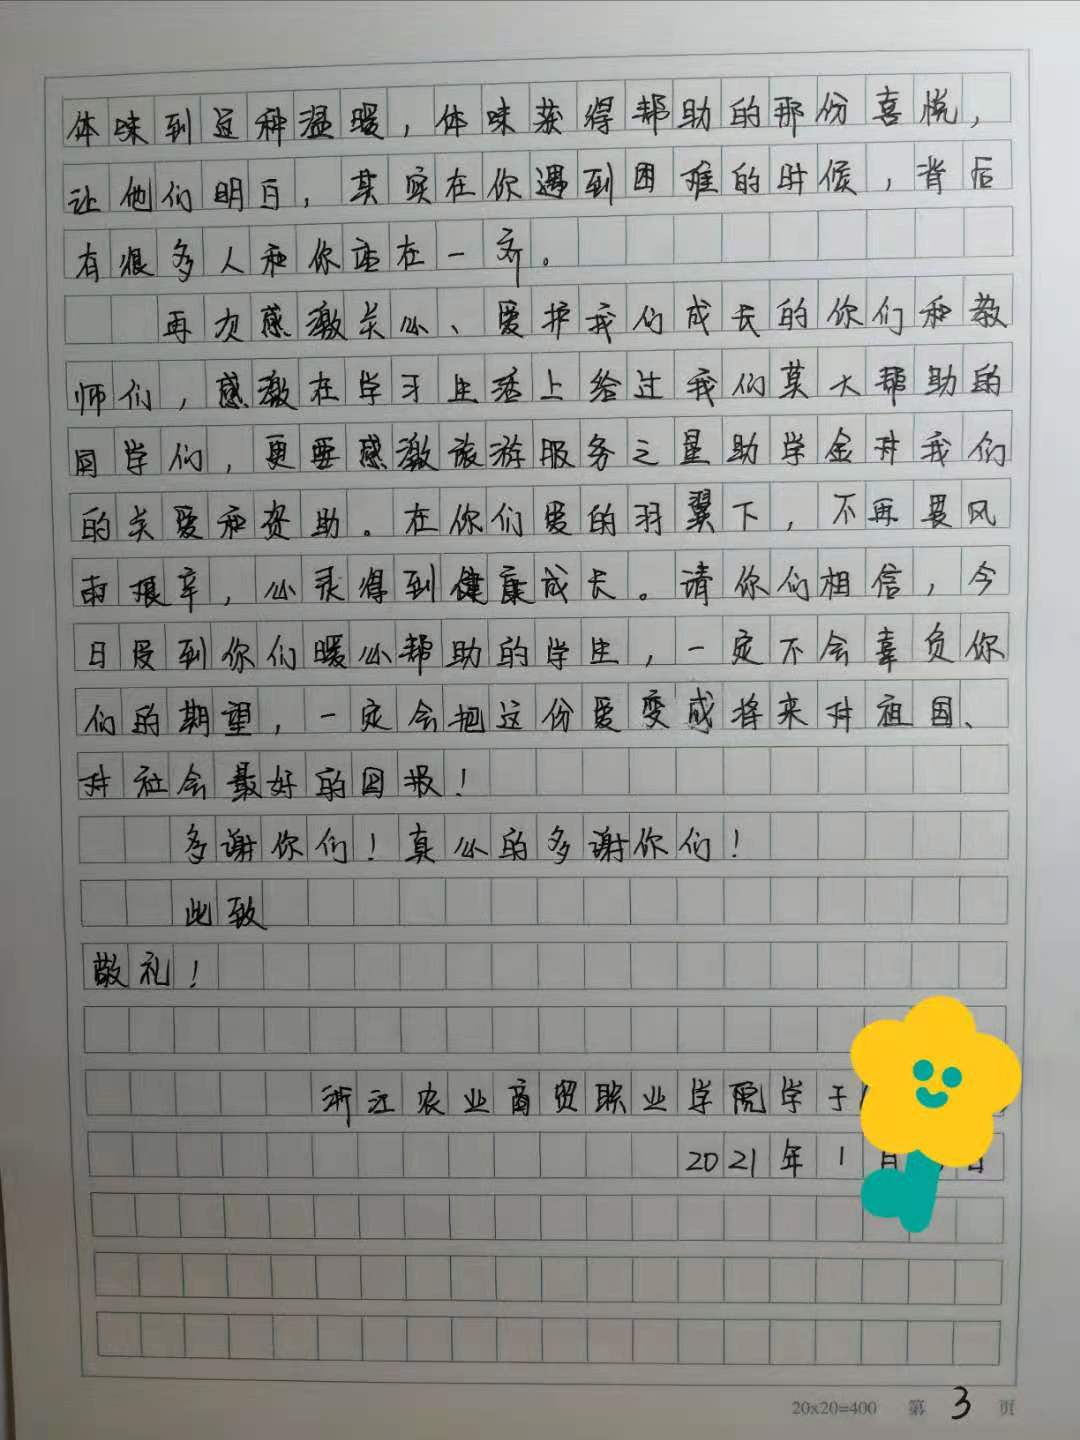 体味到这种温暖，体味获得帮助的那份喜悦，
让他们明白，其实在你遇到困难的时候，背后
有很多人和你站在一齐。
再次感激关心、爱护我们成长的你们和教
师们，感激在学习生活上给过我们莫大帮助的
同学们，更要感激旅游服务之星助学金对我们
的关爱和资助。在你们爱的羽翼下，不再畏风
雨艰辛，心灵得到健康成长。请你们相信，今
日受到你们暖心帮助的学生，一定不会辜负你
们的期望，一定会把这份爱变成将来对祖国、
对社会最好的回报！
多谢你们！真心的多谢你们！
此致
敬礼！
浙江农业商贸职业学院学子
2021年1月 日
20x20=400 第 3 页